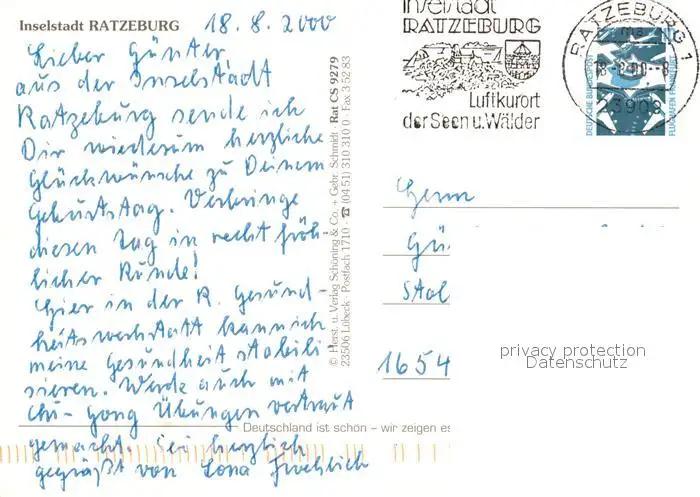 Inselstadt RATZEBURG 18.8.2000
Lieber Günter,
aus der Inselstadt
Ratzeburg sende ich
Dir wiederum herzliche
Glückwünsche zu Deinem
Geburtstag. Verbringe
diesen Tag in recht fröh-
licher Runde!
Hier in der R. Gesund-
heitswerkstatt kann ich
meine Gesundheit stabili
sieren. Werde auch mit
Chi-Gong Übungen vertraut
gemacht. Sei herzlich
gegrüßt von Lona Froehlich
© Herst. u. Verlag Schöning & Co. + Gebr. Schmidt Rat CS 9279
23506 Lübeck · Postfach 1710 · ☎ (04 51) 310 310 0 · Fax 3 52 83
Deutschland ist schön – wir zeigen es
Inselstadt
RATZEBURG
Luftkurort
der Seen u. Wälder
RATZEBURG 1
23909
DEUTSCHE BUNDESPOST
FLUGHAFEN FRANKFURT
Herrn
Gü
Stol
1654
privacy protection
Datenschutz